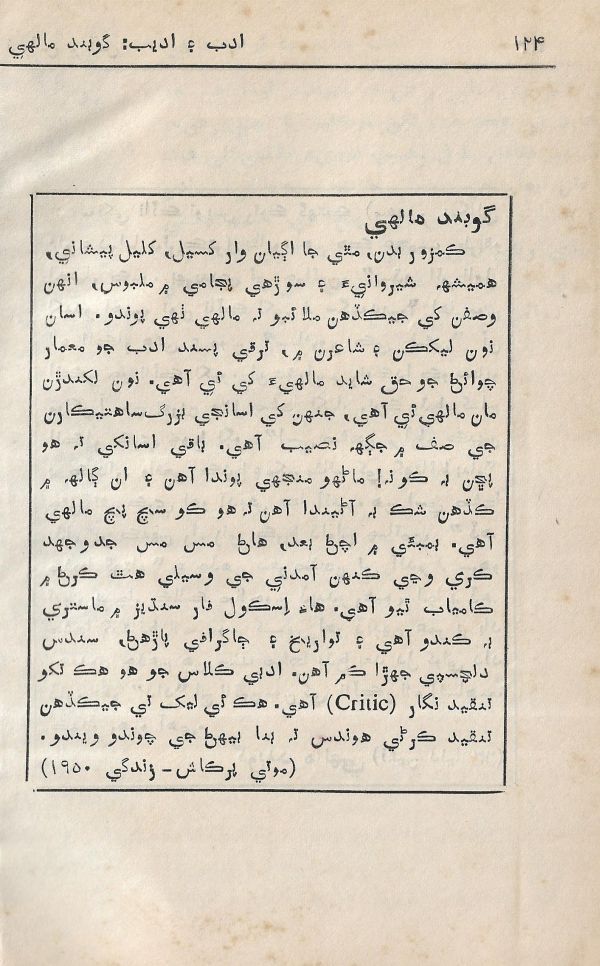 ۱۲۴
ادب ۽ اديب: گوبند مالهي
گوبند مالهي
ڪمزور بدن، مٿي جا اڳيان وار کسيل، کليل پيشاني،
هميشه شيروانيءَ ۽ سوڙهي پجامي ۾ ملبوس، انهن
وصفن کي جيڪڏهن ملائبو ته مالهي ٺهي پوندو. اسان
نون ليکڪن ۽ شاعرن ۾، ترقي پسند ادب جو معمار
چوائڻ جو حق شايد مالهيءَ کي ئي آهي. نون لکندڙن
مان مالهي ئي آهي، جنهن کي اسانجي بزرگ ساهتيڪارن
جي صف ۾ جڳهه نصيب آهي. باقي اسانکي ته هو
پڇن به ڪونه! ماڻهو منجهي پوندا آهن ۽ ان ڳالهه ۾
ڪڏهن شڪ به آڻيندا آهن ته هو ڪو سچ پچ مالهي
آهي. بمبئي ۾ اچڻ بعد، هاڻ مس مس جدوجهد
ڪري وڃي ڪنهن آمدني جي وسيلي هٿ ڪرڻ ۾
ڪامياب ٿيو آهي. هاءِ اِسڪول فار سنڌيز ۾ ماستري
به ڪندو آهي ۽ تواريخ ۽ جاگرافي پاڙهڻ، سندس
دلچسپي جهڙا ڪم آهن. ادبي ڪلاس جو هو هڪ تکو
تنقيد نگار (Critic) آهي. هڪ ئي ليک تي جيڪڏهن
تنقيد ڪرڻي هوندس ته بنا بيهڻ جي چوندو ويندو.
(موتي پرڪاش - زندگي ۱۹۵۰)